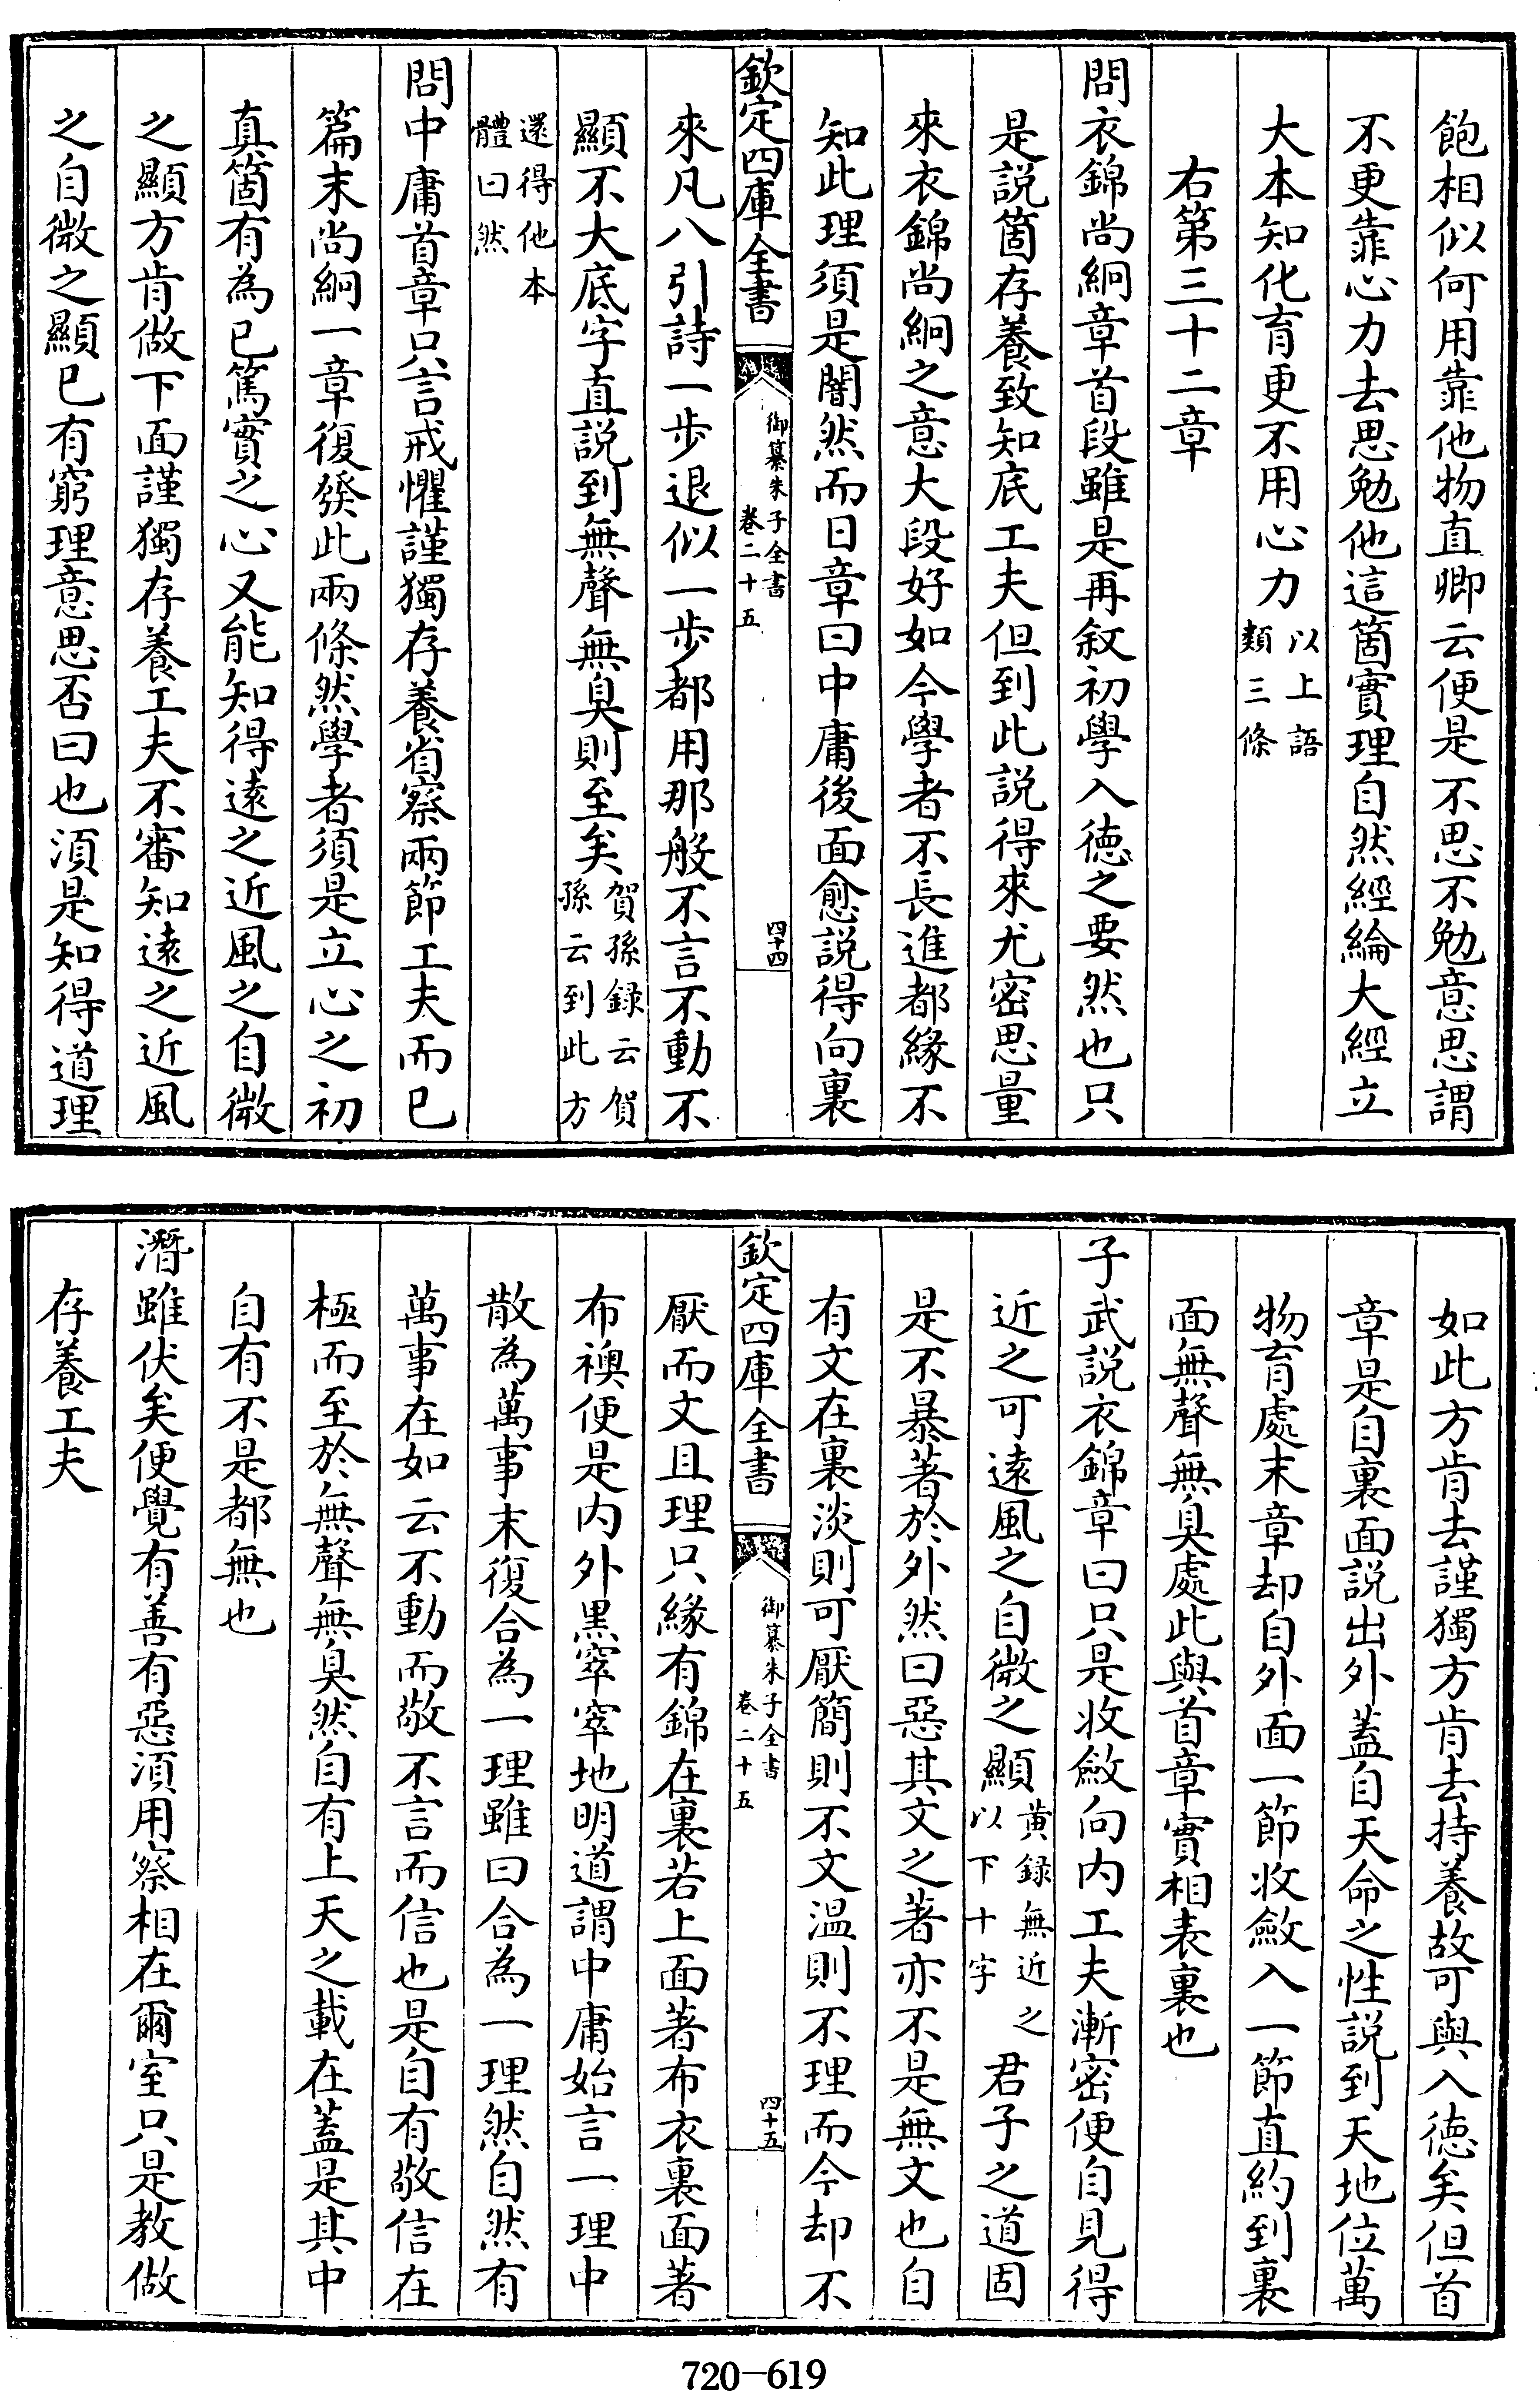 飽相似何用靠他物直卿云便是不思不勉意思謂
不更靠心力去思勉他這箇實理自然經綸大經立
大本知化育更不用心力以上語類三條
右第三十二章
問衣錦尚絅章首段雖是再叙初學入德之要然也只
是説箇存養致知底工夫但到此説得來尤密思量
來衣錦尚絅之意大段好如今學者不長進都緣不
知此理須是闇然而日章曰中庸後面愈説得向裏
欽定四庫全書
御纂朱子全書
卷二十五
四十四
來凡八引詩一步退似一步都用那般不言不動不
顯不大底字直説到無聲無臭則至矣賀孫録云賀孫云到此方
還得他本體曰然
問中庸首章只言戒懼謹獨存養省察兩節工夫而已
篇末尚絅一章復發此兩條然學者須是立心之初
真箇有為已篤實之心又能知得遠之近風之自微
之顯方肯做下面謹獨存養工夫不審知遠之近風
之自微之顯已有窮理意思否曰也須是知得道理
如此方肯去謹獨方肯去持養故可與入德矣但首
章是自裏面説出外蓋自天命之性説到天地位萬
物育處末章却自外面一節收斂入一節直約到裏
面無聲無臭處此與首章實相表裏也
子武説衣錦章曰只是收斂向内工夫漸密便自見得
近之可遠風之自微之顯黄録無近之以下十字君子之道固
是不暴著於外然曰惡其文之著亦不是無文也自
有文在裏淡則可厭簡則不文温則不理而今却不
欽定四庫全書
御纂朱子全書
卷二十五
四十五
厭而文且理只緣有錦在裏若上面著布衣裏面著
布襖便是内外黒窣窣地明道謂中庸始言一理中
散為萬事末復合為一理雖曰合為一理然自然有
萬事在如云不動而敬不言而信也是自有敬信在
極而至於無聲無臭然自有上天之載在蓋是其中
自有不是都無也
潛雖伏矣便覺有善有惡須用察相在爾室只是教做
存養工夫
720-619